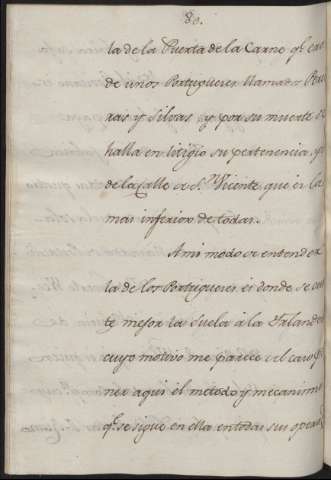 80.
la de la Puerta de la Carne qe. era
de unos Portugueses llamados
xas y Silvas y por su muerte se
halla en litigio su pertenencia, y
de la Calle de Sn. Vicente que es la
mas inferior de todas.
A mi modo de entender
la de los Portugueses es donde se cur
te mejor la Suela à la Irlanda
cuyo motivo me parece del caso
ner aqui el metodo y mecanismo
qe. se sigue en ella en todas sus opera